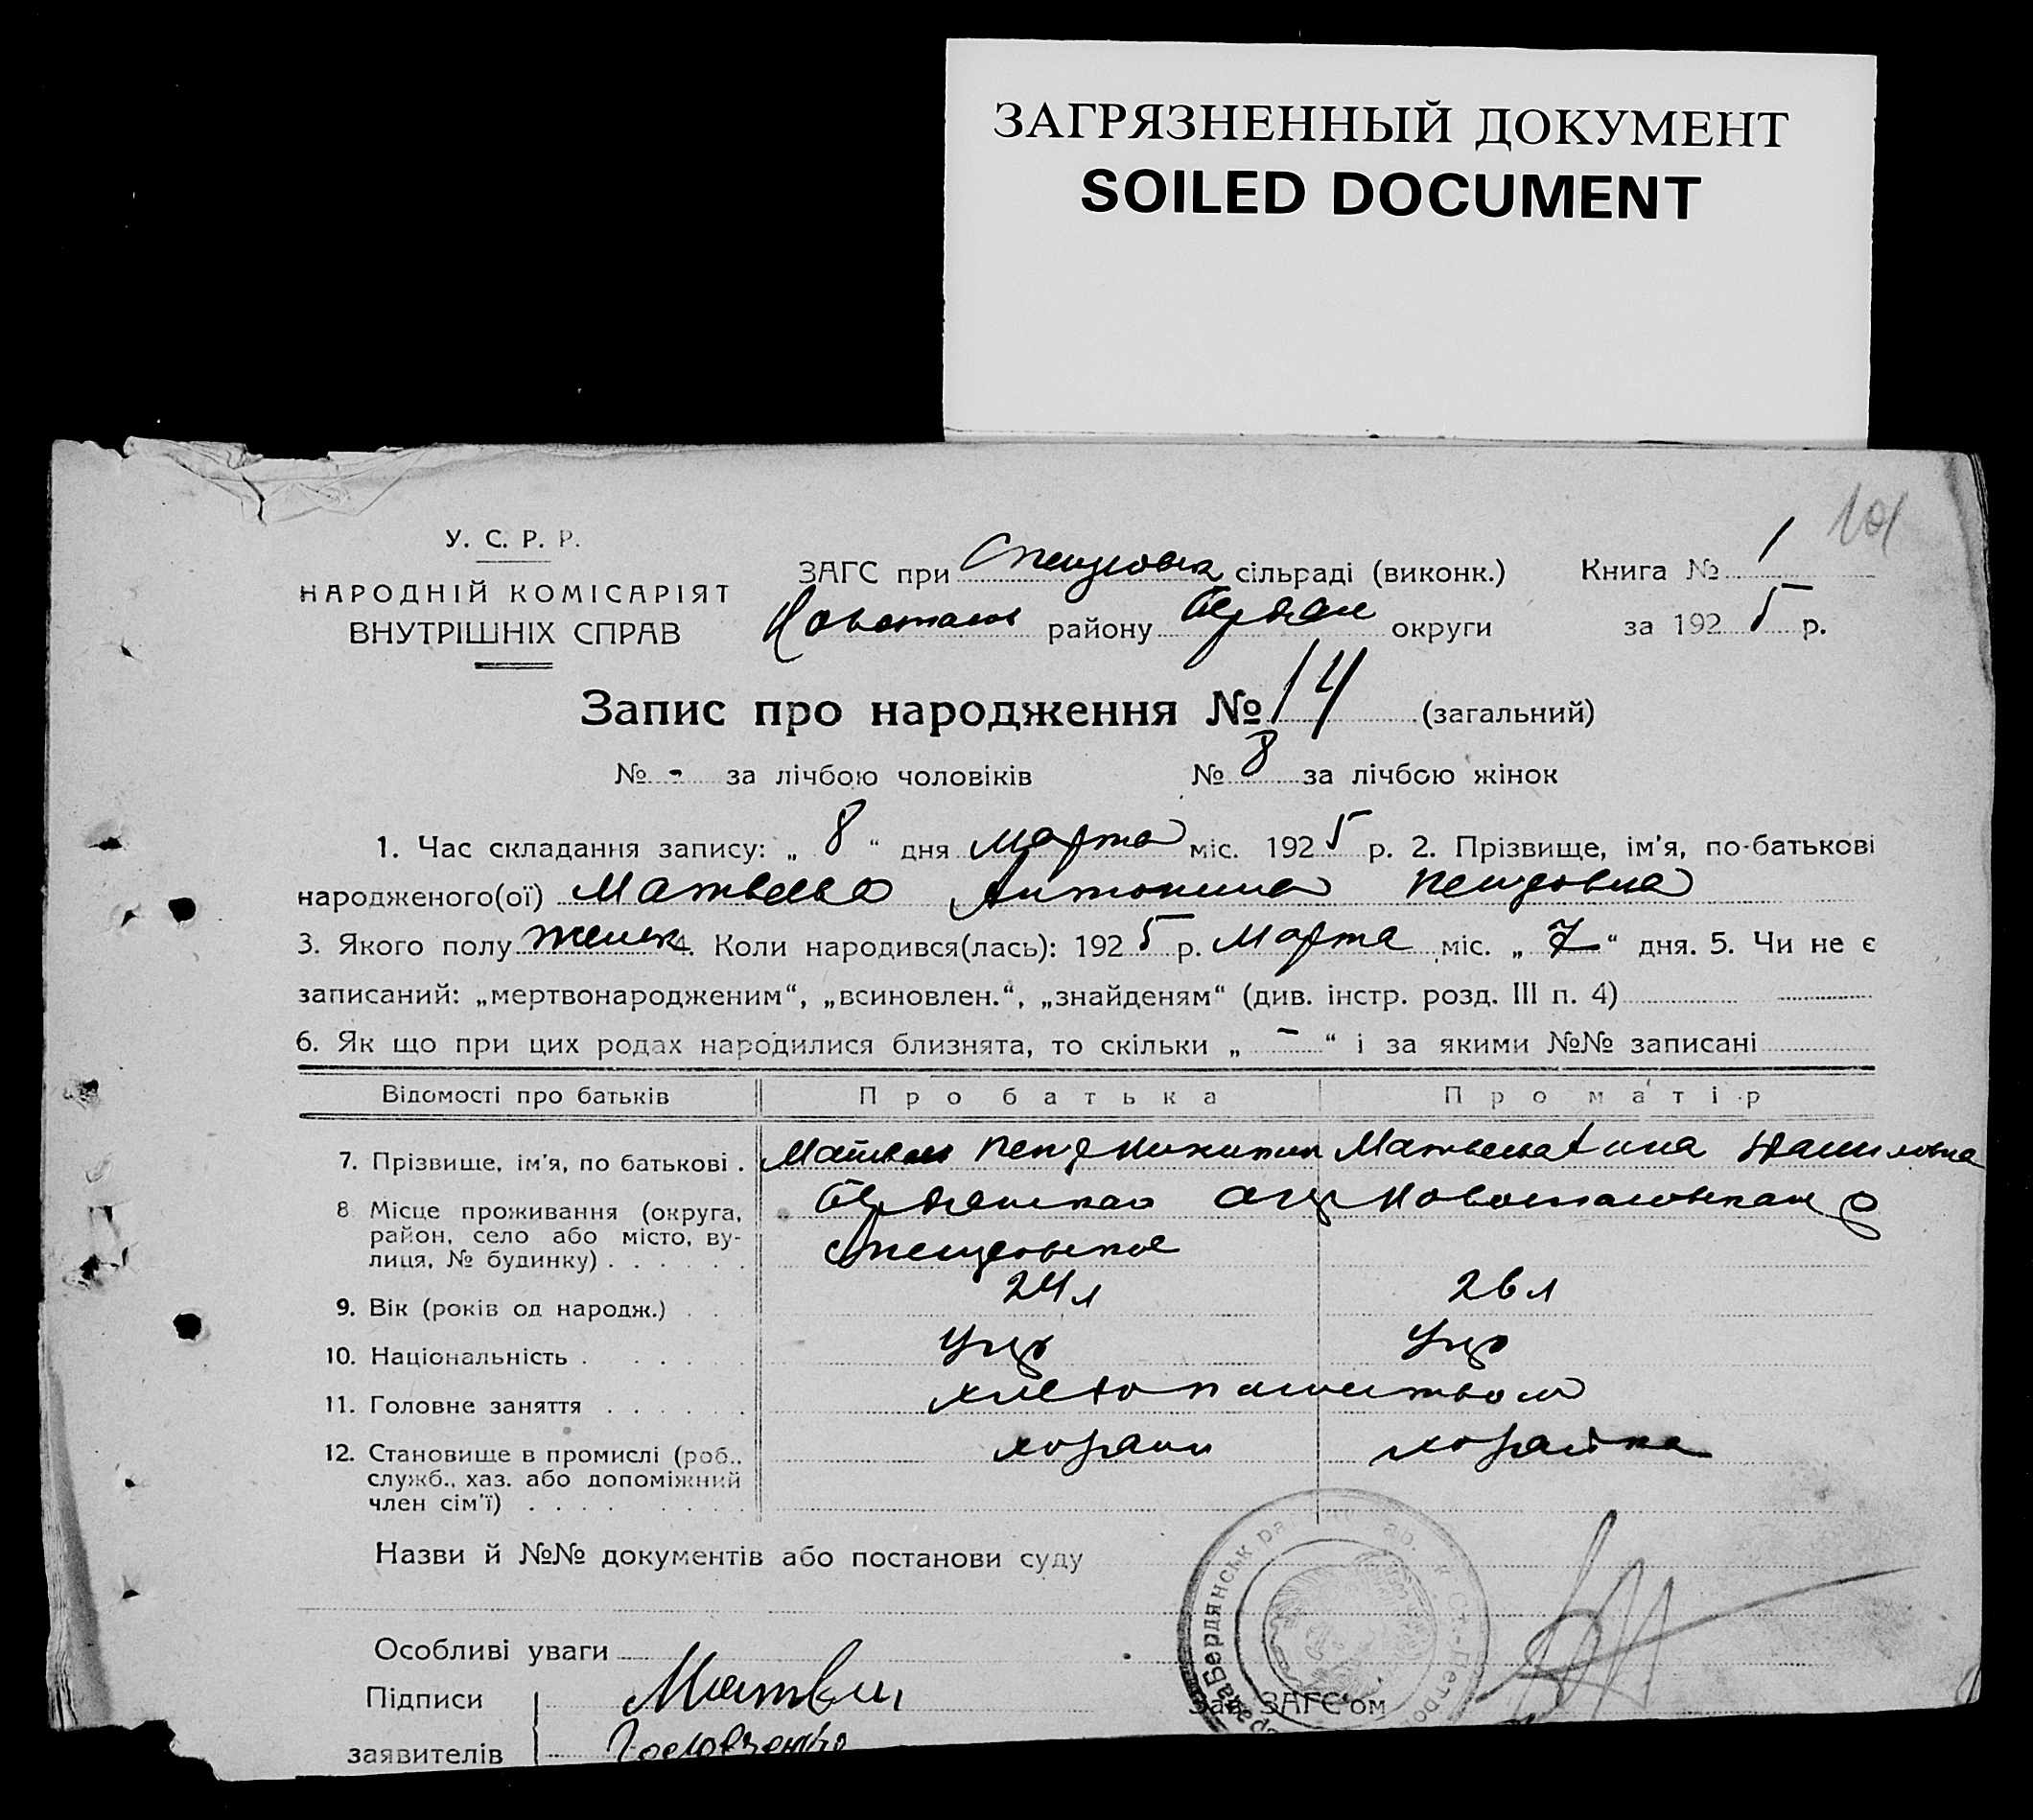 ЗАГРЯЗНЕННЫЙ ДОКУМЕНТ
SOILED DOCUMENT
101
У. С. Р. Р.
НАРОДНІЙ КОМІСАРІЯТ
ВНУТРІШНІХ СПРАВ
ЗАГС при сільраді (виконк.) Книга № 1
району Бердян округи за 1925 р.
Запис про народження № 14 (загальний)
№ - за лічбою чоловіків № 8 за лічбою жінок
1. Час складання запису: „ 8 “ дня Марта міс. 1925 р. 2. Прізвище, ім'я, по-батькові
народженого(ої) Матвеева Антонина Петровна
3. Якого полу женск 4. Коли народився(лась): 1925 р. Марта міс. „ 7 “ дня. 5. Чи не є
записаний: „мертвонародженим“, „всиновлен.“, „знайденям“ (див. інстр. розд. III п. 4)
6. Як що при цих родах народилися близнята, то скільки „ - “ і за якими №№ записані
Відомості про батьків Про батька Про матір
7. Прізвище, ім'я, по батькові . Петр Никитич Данииловна
8 Місце проживання (округа,
район, село або місто, ву-
лиця, № будинку) . . . . . .
Бердянская
9. Вік (років од народж.) . . 24 л 26 л
10. Національність . . . . . Укр Укр
11. Головне заняття . . . . . . хлебопашеством
12. Становище в промислі (роб.,
служб., хаз. або допоміжний
член сім'ї) . . . . . . . .
хозяин хозяйка
Назви й №№ документів або постанови суду
Особливі уваги
Підписи
заявителів
Зав. ЗАГС'ом
Бердянськ